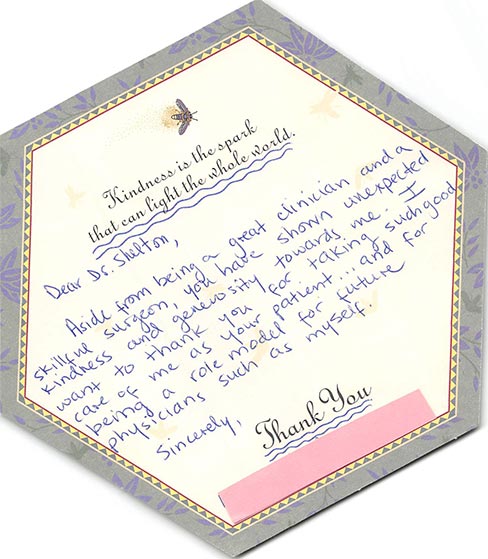 Kindness is the spark
that can light the whole world.
Dear Dr. Shelton,
Aside from being a great clinician and a
skillful surgeon, you have shown unexpected
kindness and generosity towards me. I
want to thank you for taking such good
care of me as your patient... and for
being a role model for future
physicians such as myself.
Sincerely,
Thank You